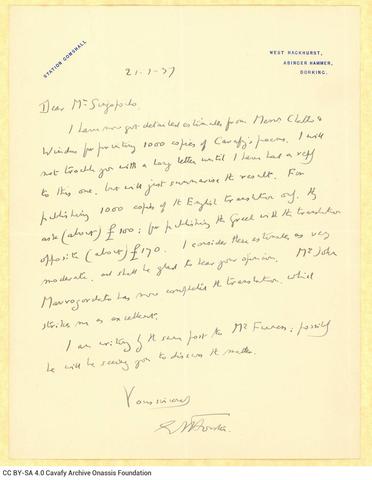 STATION GOMSHALL
WEST HACKHURST,
ABINGER HAMMER,
DORKING.
21-1-37
Dear Mr Singopoulo.
I have now got detailed estimates from Messrs Chatto &
Windus for printing 1000 copies of Cavafy's poems. I will
not trouble you with a long letter until I have had a reply
to this one, but will just summarise the result. For
publishing 1000 copies of the English translation only they
ask (about) £100; for publishing the Greek with the translation
opposite (about) £170. I consider these estimates as very
moderate, and shall be glad to hear your opinion. Mr John
Mavrogordato has now completed the translation, which
strikes me as excellent.
I am writing by the same post to Mr Furness: possibly
he will be seeing you to discuss the matter.
Yours sincerely
EMForster.
CC BY-SA 4.0 Cavafy Archive Onassis Foundation